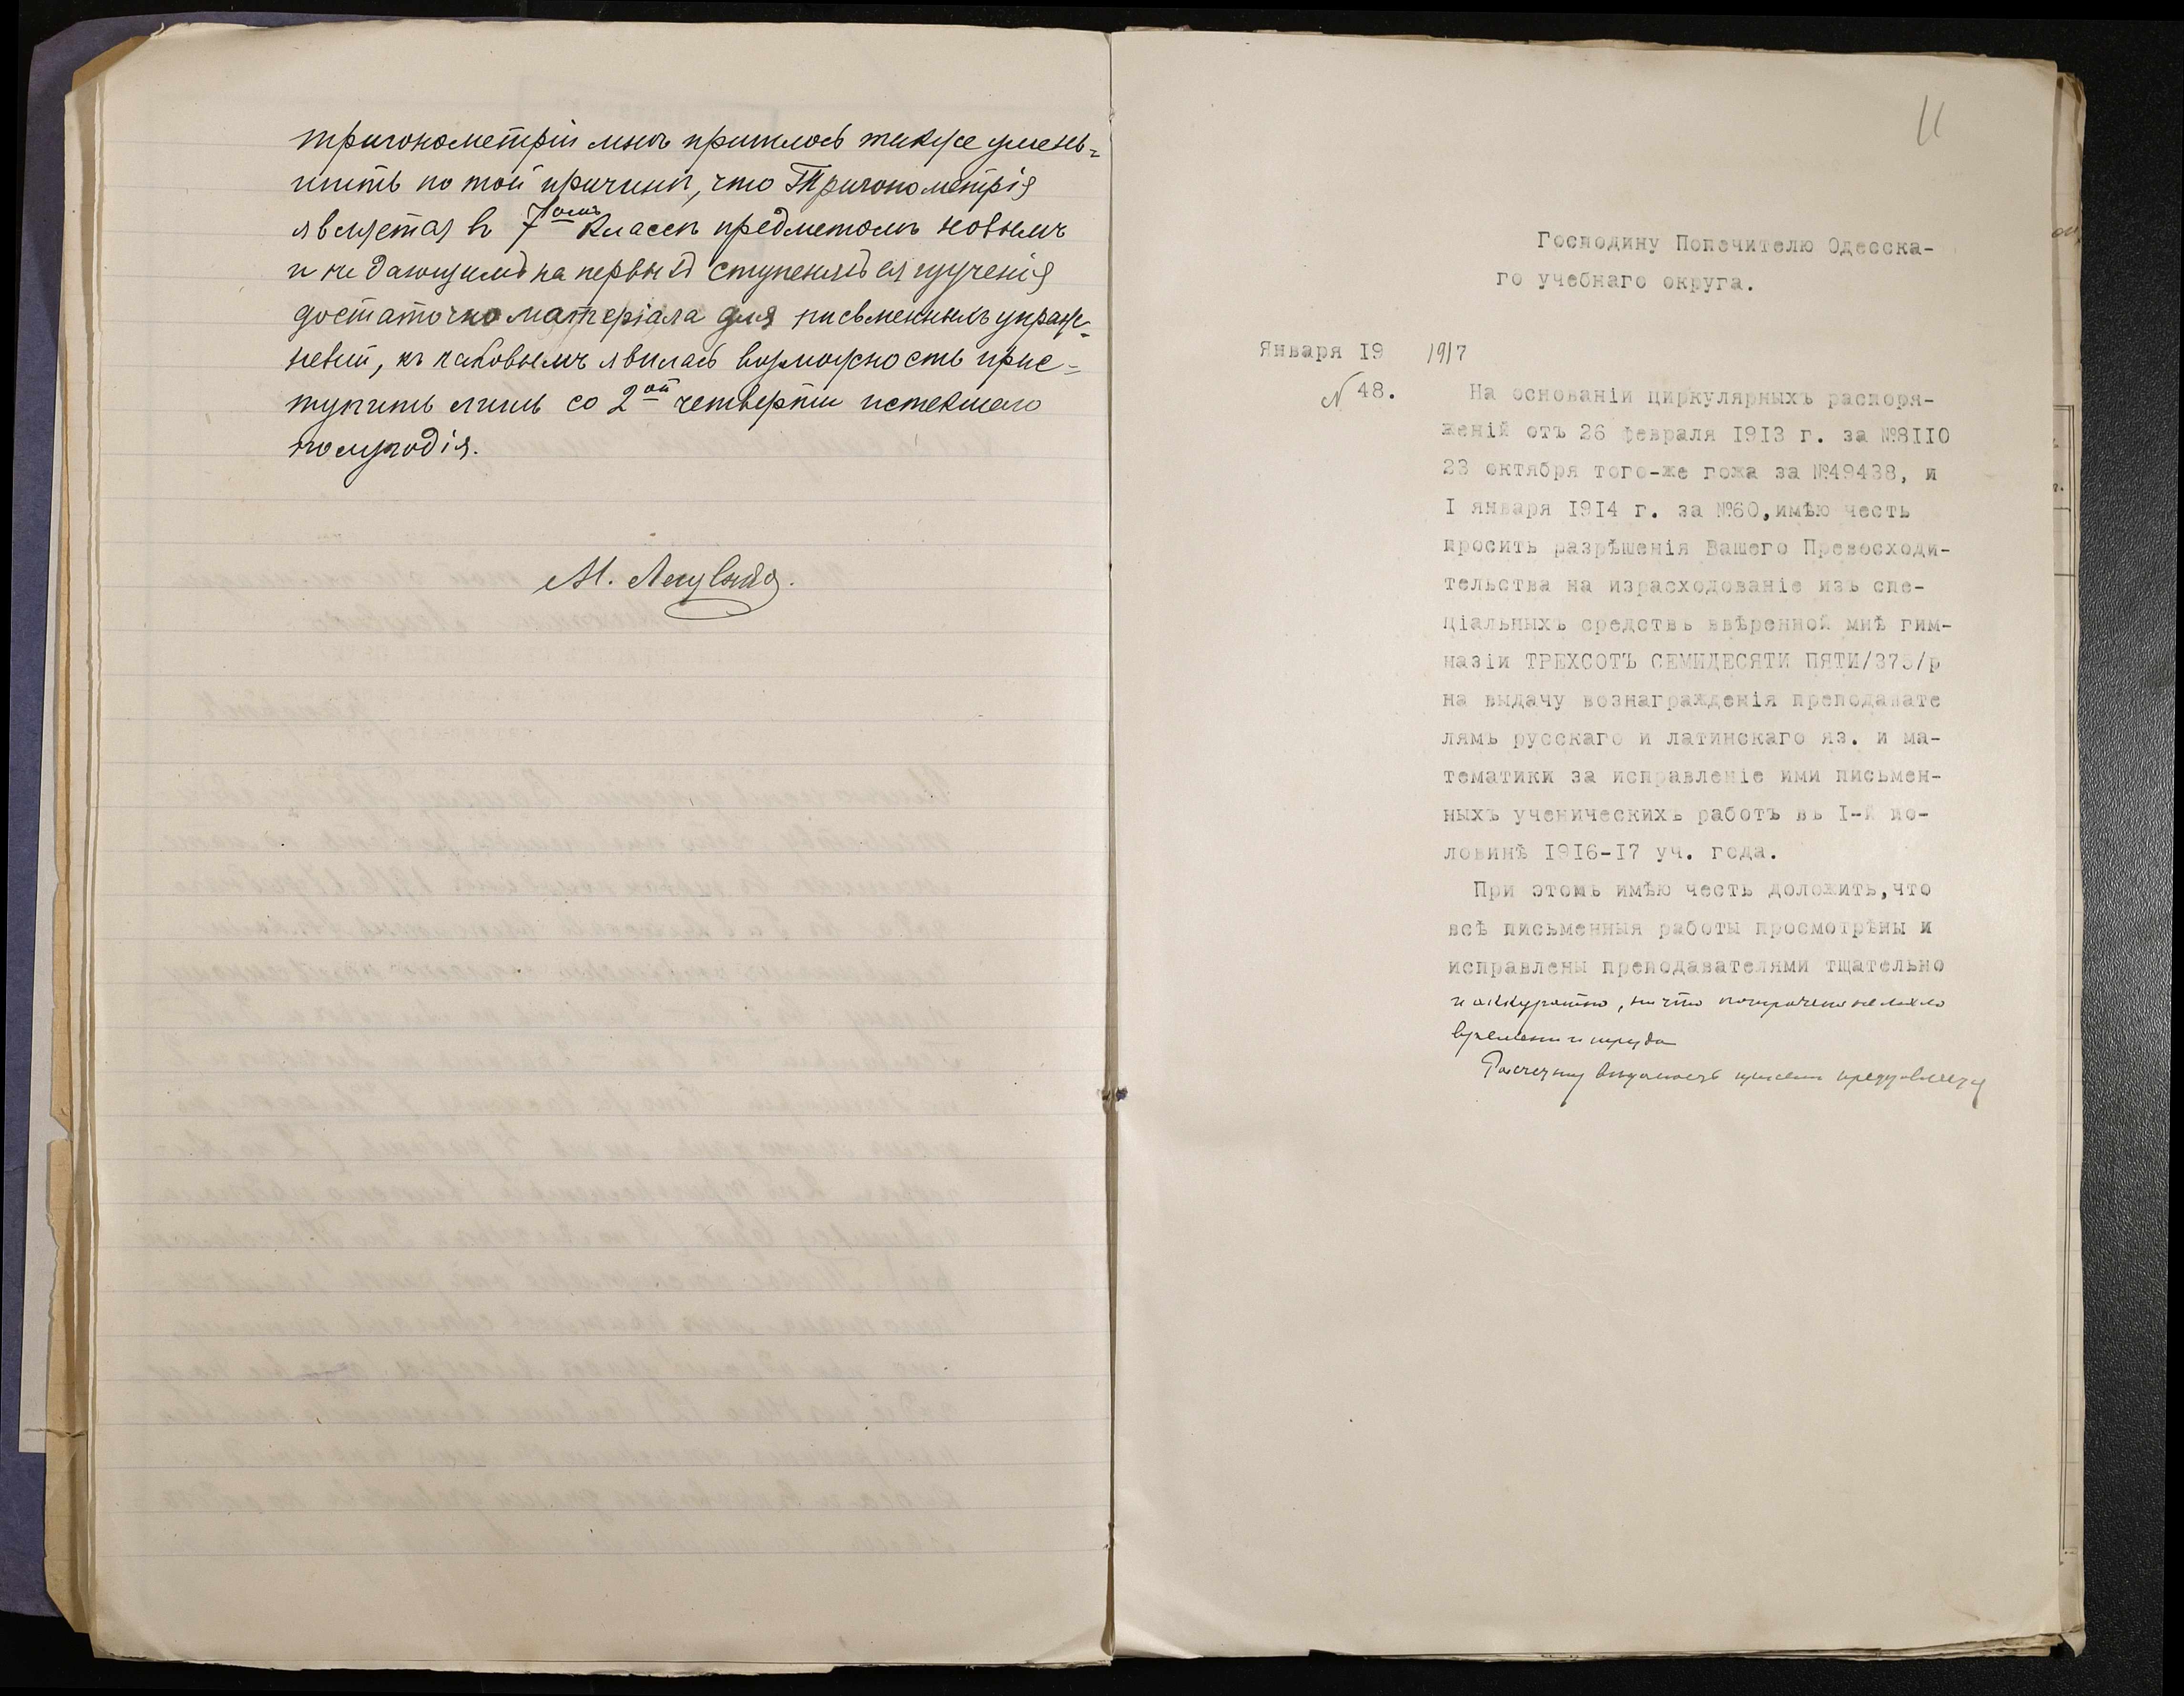 тригонометріи мнѣ пришлось также умень=
шить по той причинѣ, что Тригонометрія
является въ 7омъ классѣ предметомъ новымъ
и не дающимъ на первыхъ ступеняхъ ея изученія
достаточно матеріала для письменныхъ упраж=
неній, къ каковымъ явилась возможность прис=
тупить лишь со 2ой четверти истекшаго
полугодія.
М.
11
Господину Попечителю Одесска-
го учебнаго округа.
Января I9 1917
№ 48.
На основаніи циркулярныхъ распоря-
женій отъ 26 февраля I9I3 г. за №8IIO
23 октября того-же гожа за №49438, и
I января I9I4 г. за №60,имѣю честь
просить разрѣшенія Вашего Превосходи-
тельства на израсходованіе изъ спе-
ціальныхъ средствъ ввѣренной мнѣ гим-
назіи ТРЕХСОТЪ СЕМИДЕСЯТИ ПЯТИ/375/р
на выдачу вознагражденія преподавате
лямъ русскаго и латинскаго яз. и ма-
тематики за исправленіе ими письмен-
ныхъ ученическихъ работъ въ I-й по-
ловинѣ I9I6-I7 уч. года.
При этомъ имѣю честь доложить,что
всѣ письменныя работы просмотрѣны и
исправлены преподавателями тщательно
и аккуратно, на что потрачено не мало
времени и труда